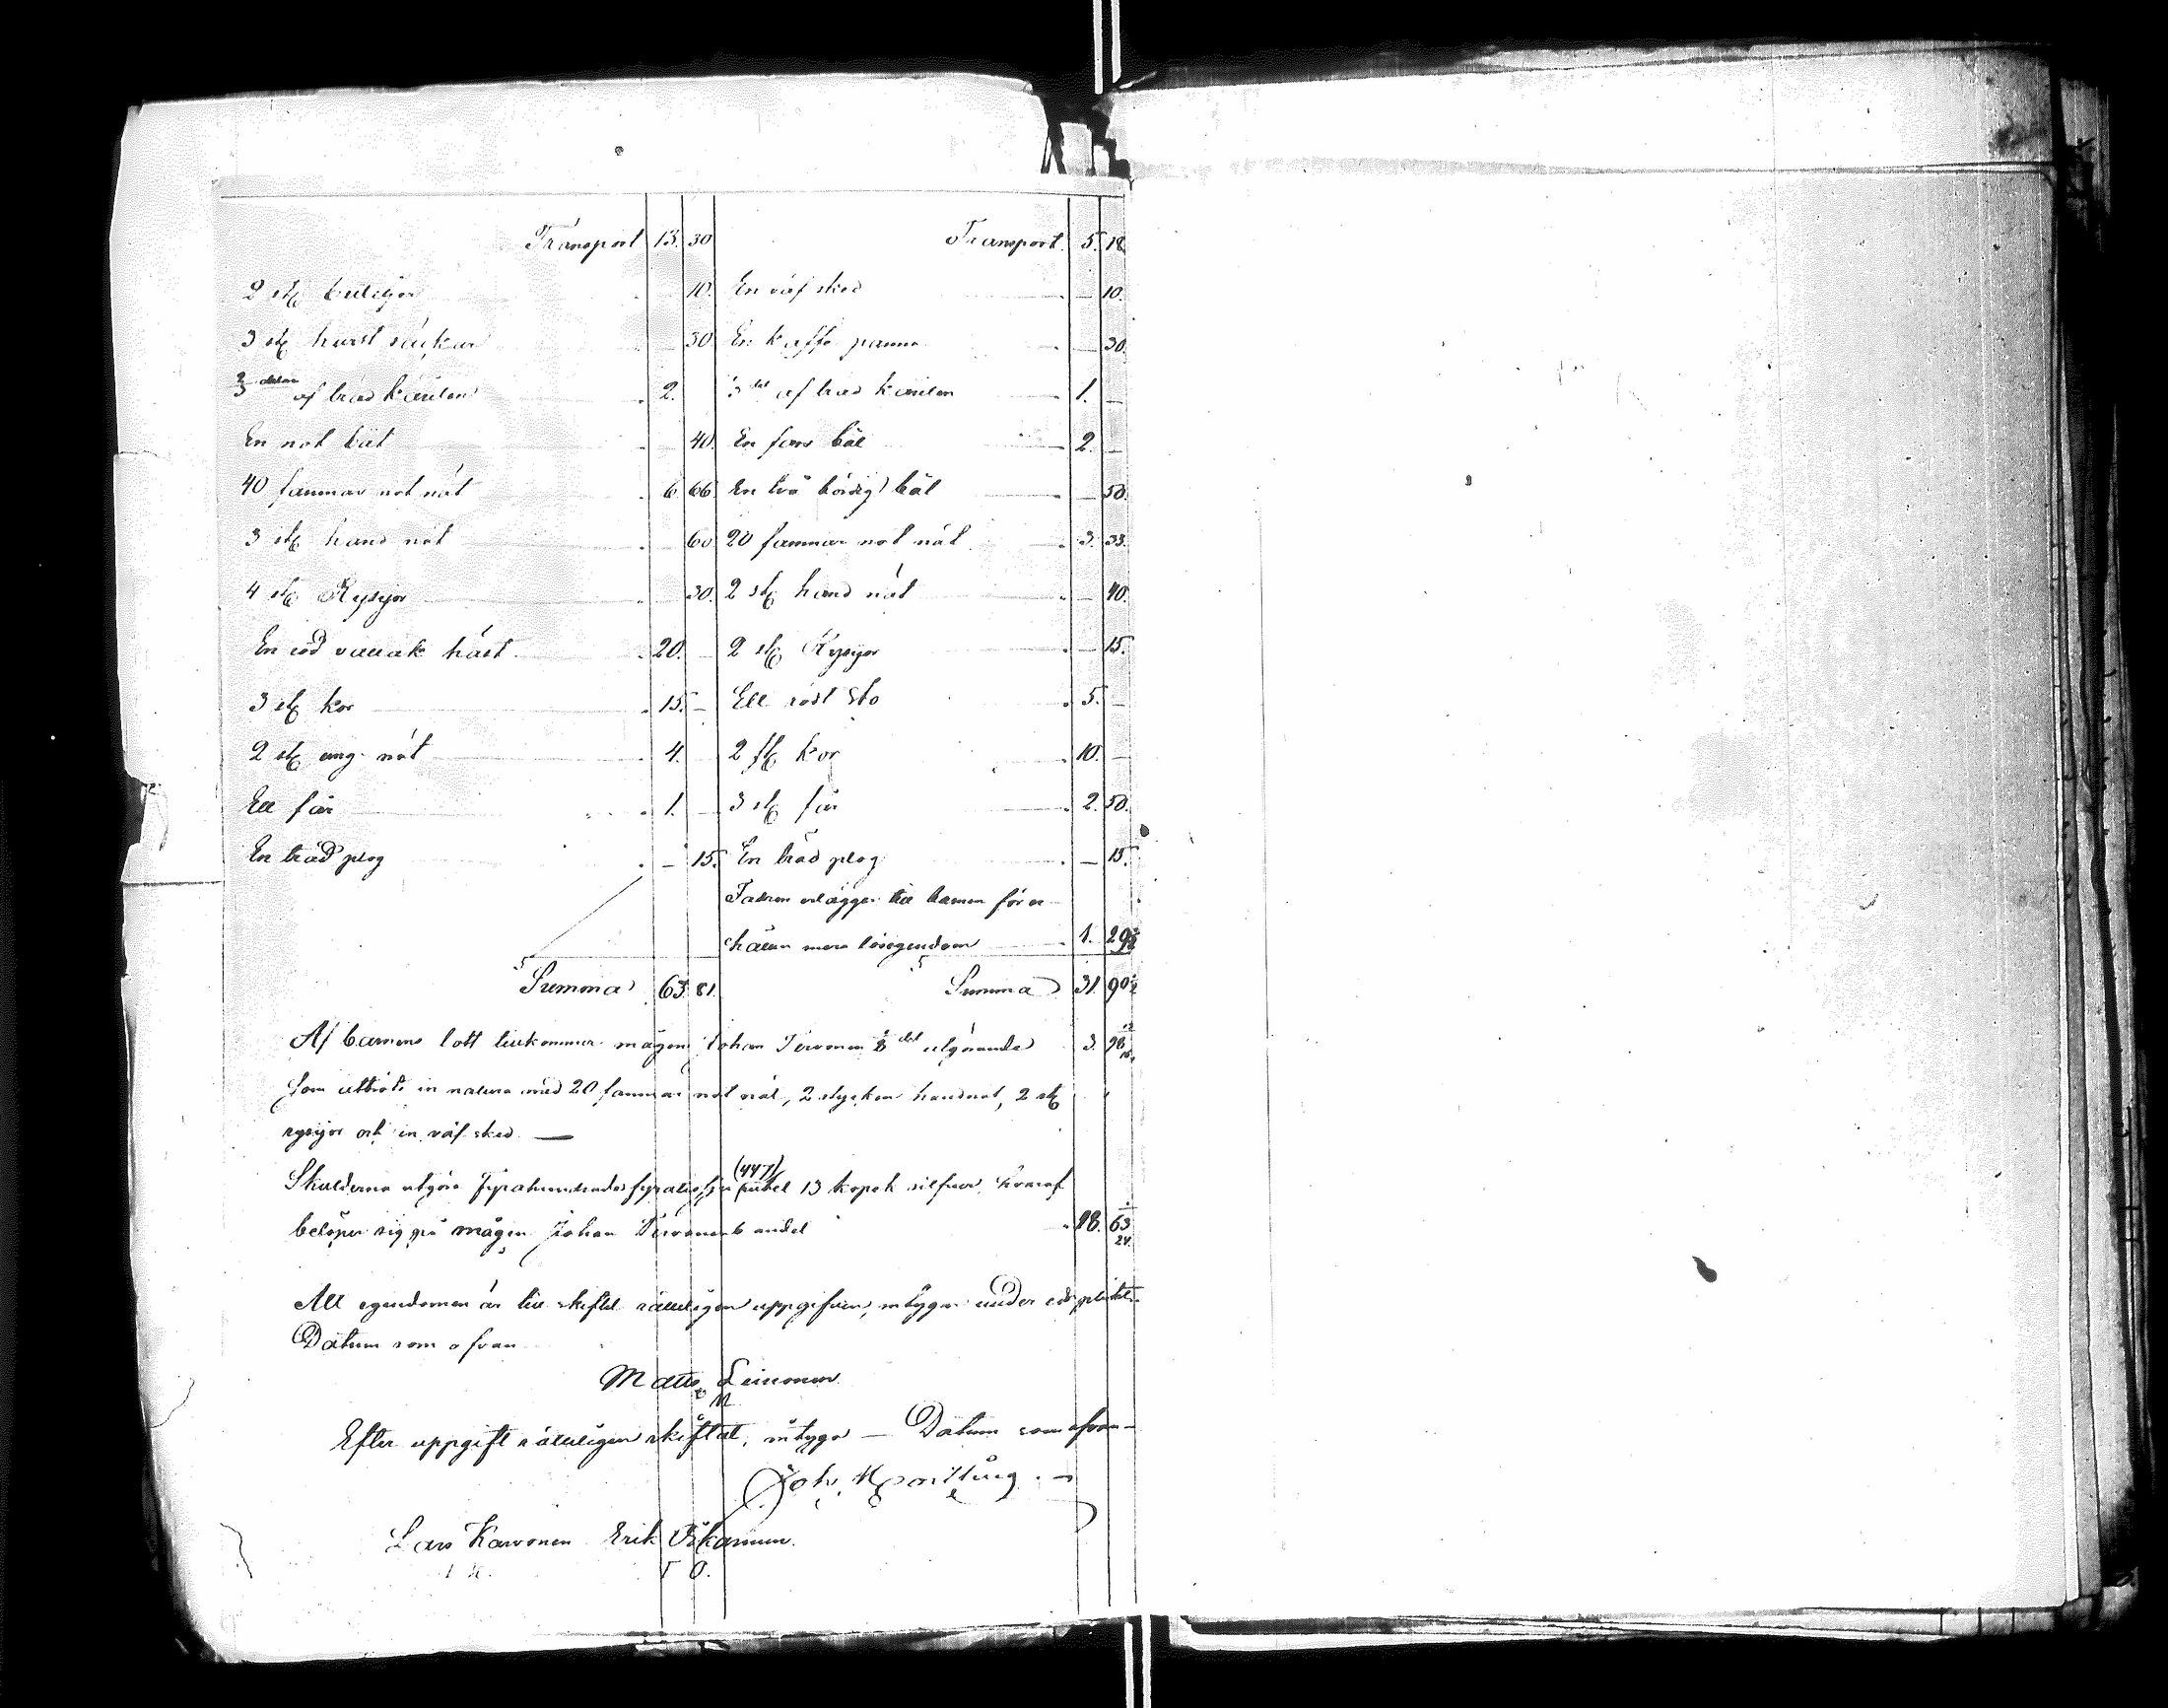 Transport 13. 30
2 st 10.
3 st hurst säckar 30
2/3 delar af träd kärilen 2.
En not båt 40.
40 famnar not nät 6. 66
3 st hand nät 60
4 st Rysijor 30.
En röd vallak häst 20. —
3 st kor 15. —
2 st ung nöt 4.
Ett får 1.
En träd plog — 15.
Summa 63. 81.
Transport 5. 18
En väf sked — 10.
En kaffe panna — 30.
3 del af träd kärilen 1. —
En båt 2. —
En två bördig båt — 50.
20 famnar not nät 3. 33.
2 st hand nät — 40.
2 st Rysijor — 15.
Ett rödt Sto 5. —
2 st kor 10. —
3 st får 2. 50.
En träd plog — 15.
Fadren utlägger till barnen för er-
hållen mera lösegendom 1. 29½
Summa 31. 90½
Af barnens lott tillkommer mågen Johan Tervonen ⅛ del utgörande 3. 98
Som utbröts in natura med 20 famnar not nät, 2 stycken handnät, 2 st
rysijor och en väf sked —
Skulderna utgöra Fyrahundradefyratiosju (447) rubel 13 kopek silfver, hvaraf
belöper sig på mågen Johan Tervonens andel 18. 63 1/24
All egendomen är till skiftet rätteligen uppgifven, intygar under edsplikt.
Datum som ofvan
Matts Leinonen
Efter uppgift rätteligen skiftat, intyga — Datum som ofvan —
Joh.
Lars Karvonen Erik